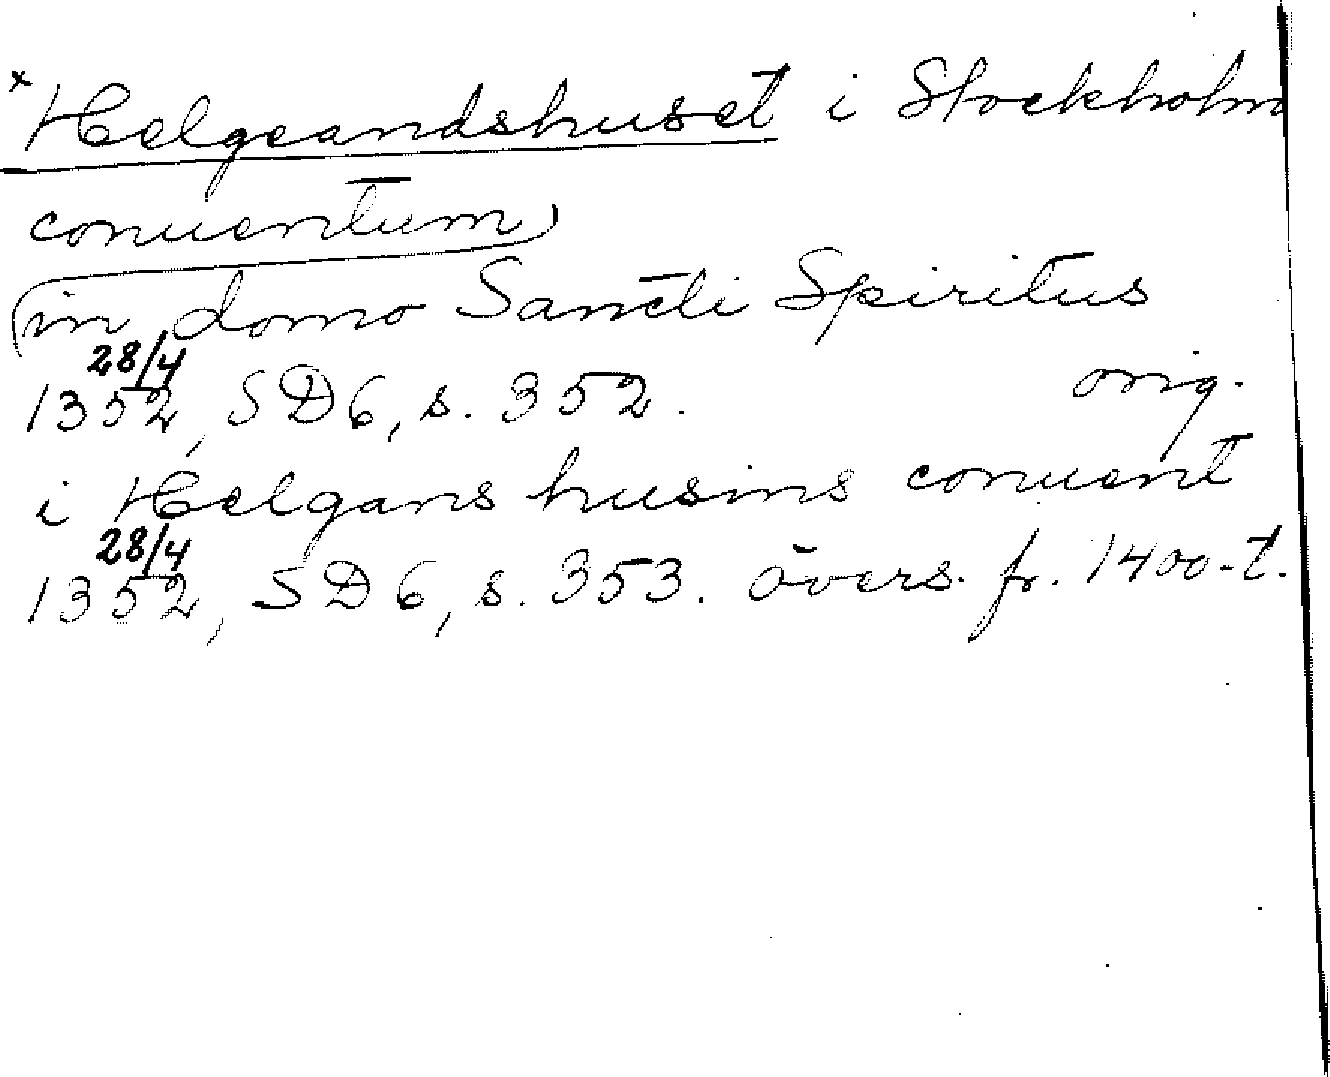 × Helgeandshuset i Stockholm
conuentum)
(in domo Sancti Spiritus
28/4
1352, SD6, s. 352. orig.
i Helgans husins conuent
28/4
1352, SD6, s. 353. övers. fr. 1400-t.